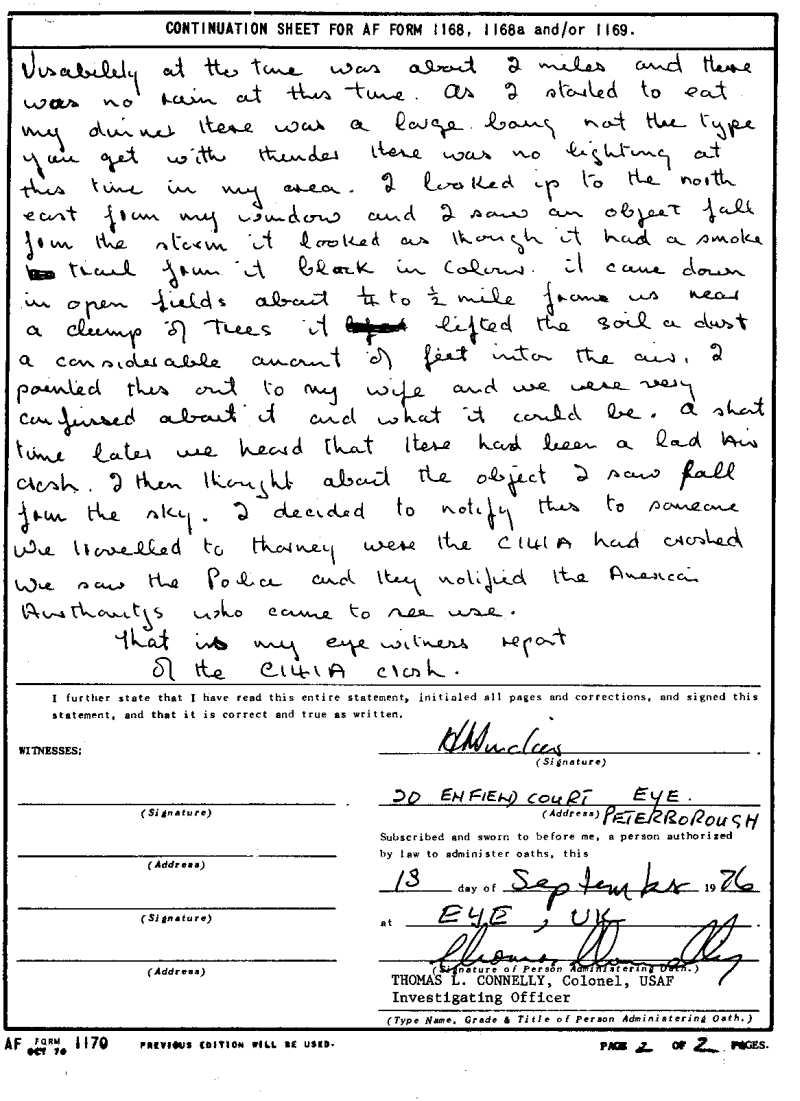 CONTINUATION SHEET FOR AF FORM 1168, 1168a and/or 1169.
Visabilely at the time was about 2 miles and there
was no rain at this time. as I started to eat
my dinner there was a large bang not the type
you get with thunder there was no lighting at
this time in my area. I looked up to the north
east from my window and I saw an object fall
from the storm it looked as though it had a smoke
trail from it black in colour. it came down
in open fields about 1/4 to 1/2 mile from us near
a clump of trees it lifted the soil a dust
a considerable amount of feet into the air, I
pointed this out to my wife and we were very
confussed about it and what it could be. a short
time later we heard that there had been a bad Air
crash. I then thought about the object I saw fall
from the sky. I decided to notify this to someone
We travelled to thorney were the C141A had crashed
We saw the Police and they notified the American
Authoritys who came to see use.
that is my eye witness report
of the C141A crash.
I further state that I have read this entire statement, initialed all pages and corrections, and signed this
statement, and that it is correct and true as written.
WITNESSES:
(Signature)
20 ENFIEND COURT EYE.
(Signature)
(Address) PETERBOROUGH
Subscribed and sworn to before me, a person authorized
by law to administer oaths, this
(Address)
13 day of September 1976
(Signature)
at EYE, UK
(Address)
(Signature of Person Administering Oath.)
THOMAS L. CONNELLY, Colonel, USAF
Investigating Officer
(Type Name, Grade & Title of Person Administering Oath.)
AF FORM OCT 70 1170 PREVIOUS EDITION WILL BE USED. PAGE 2 OF 2 PAGES.